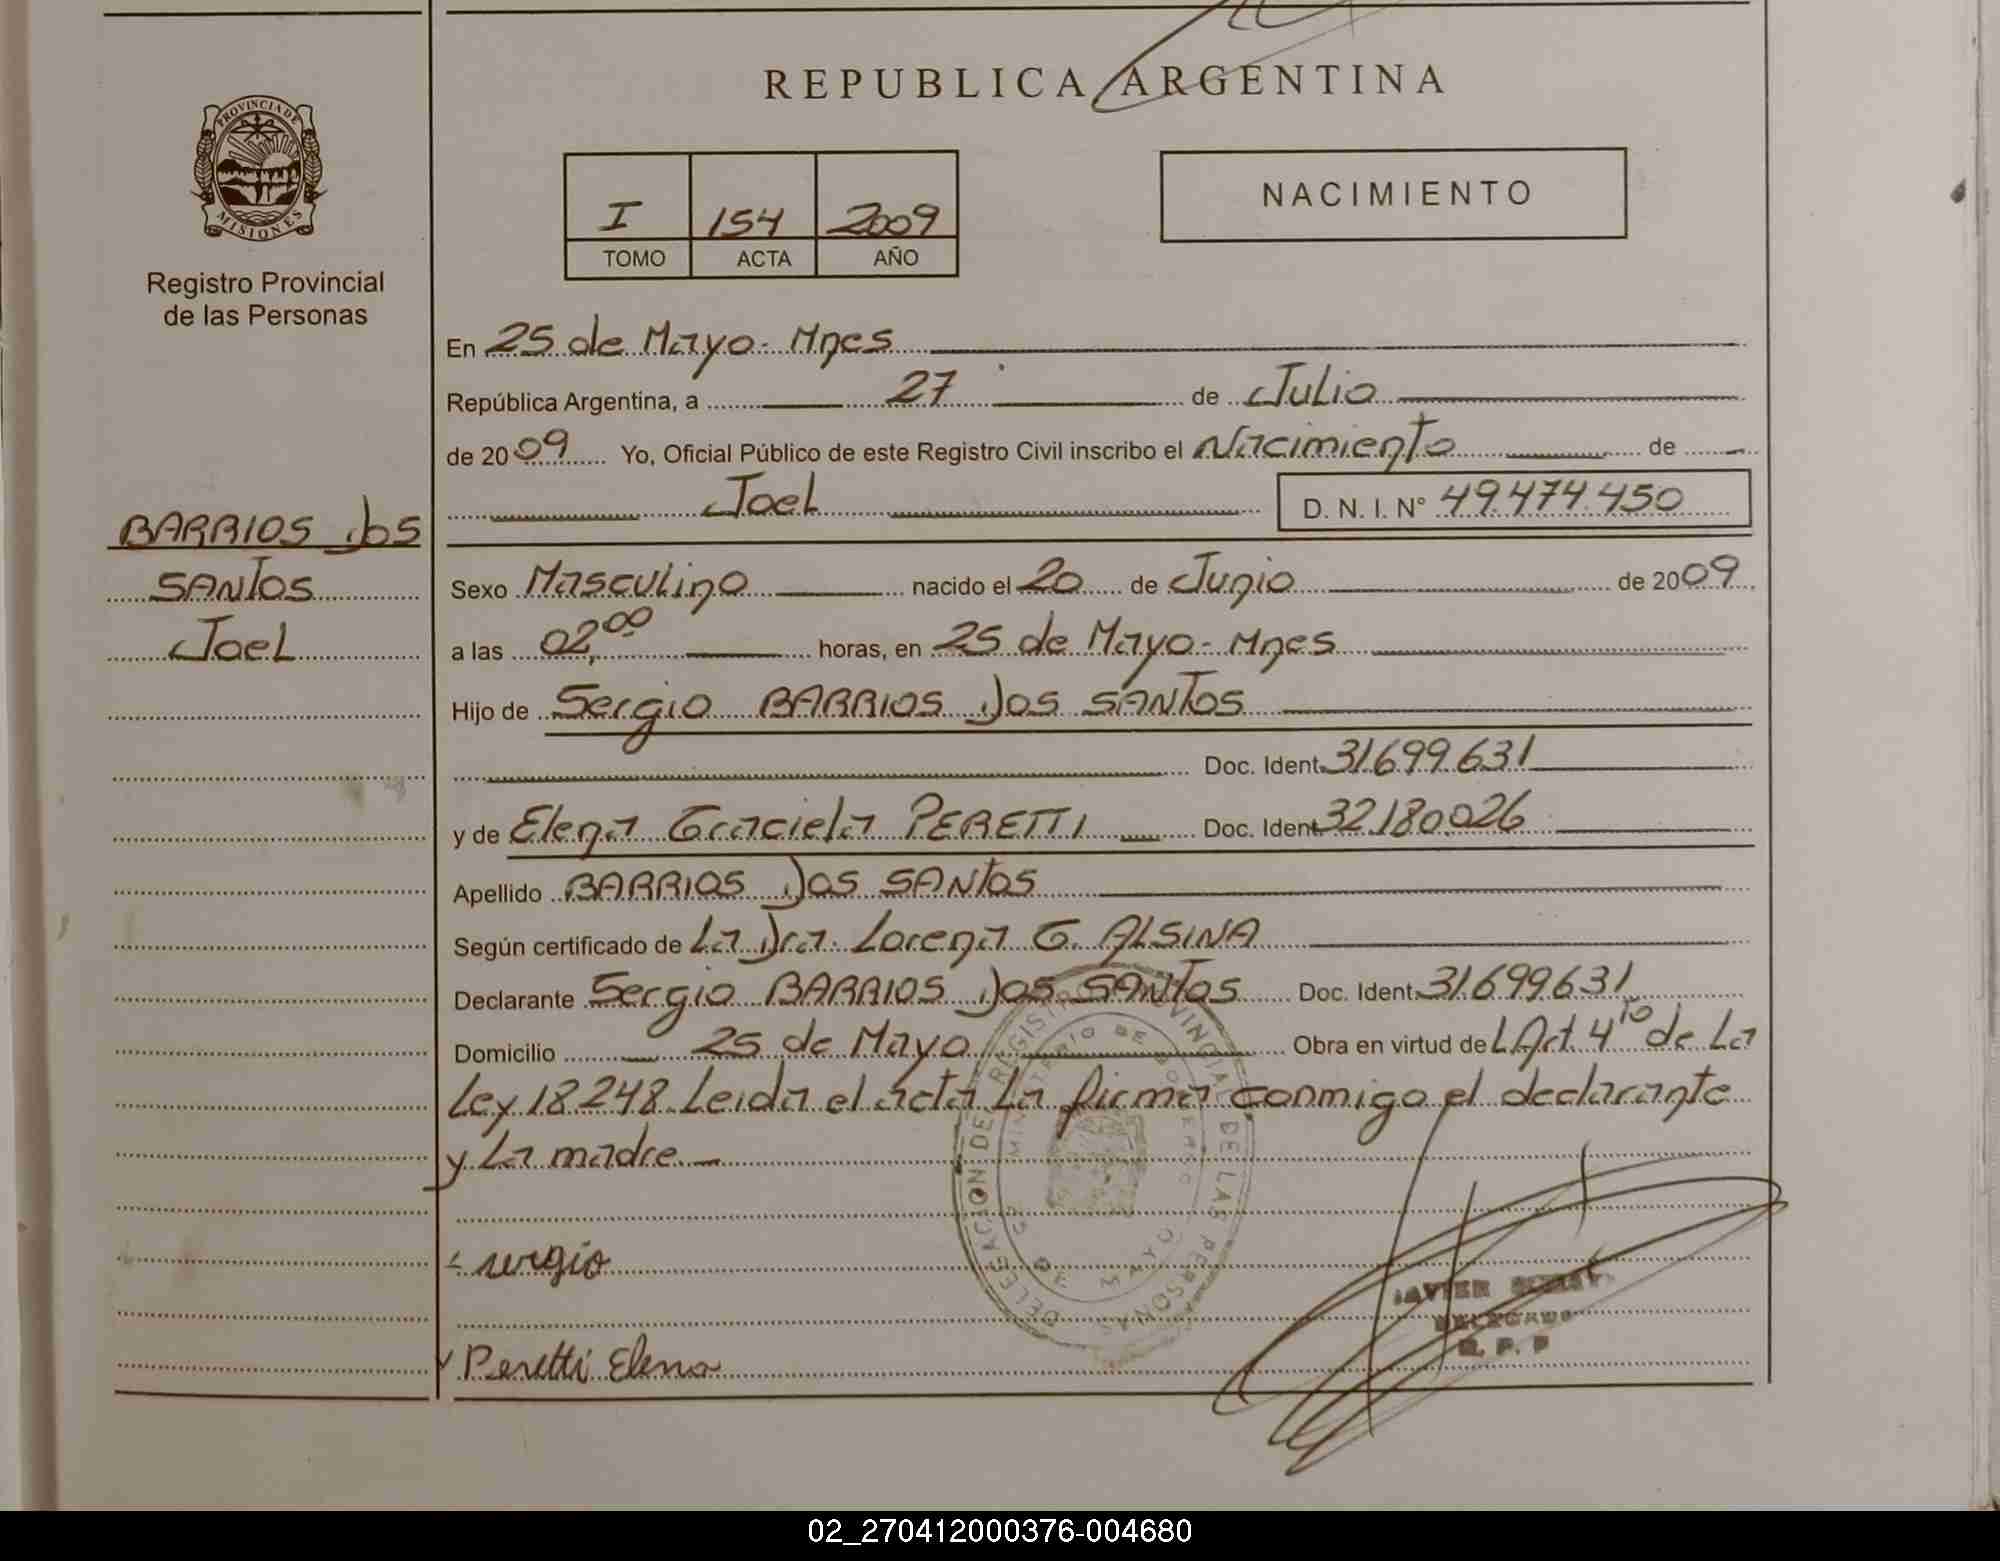 REPUBLICA ARGENTINA
PROVINCIA DE
MISIONES
Registro Provincial
de las Personas
I 154 2009
TOMO ACTA AÑO
NACIMIENTO
BARRIOS DOS
SANTOS
Joel
En 25 de Mayo - Mnes
República Argentina, a 27 de Julio
de 2009 Yo, Oficial Público de este Registro Civil inscribo el Nacimiento de
Joel D. N. I. N° 49.474.450
Sexo Masculino nacido el 20 de Junio de 2009
a las 02,00 horas, en 25 de Mayo - Mnes
Hijo de Sergio BARRIOS DOS SANTOS
Doc. Ident. 31.699.631
y de Elena Graciela PERETTI Doc. Ident. 32.180.026
Apellido BARRIOS DOS SANTOS
Según certificado de La Dra. Lorena G. ALSINA
Declarante Sergio BARRIOS DOS SANTOS Doc. Ident. 31.699.631
Domicilio 25 de Mayo Obra en virtud de L Art. 4to de La
Ley 18.248. Leida el acta La firma conmigo el declarante
y La madre. —
DELEGACION DE REGISTRO PROVINCIAL DE LAS PERSONAS
MINISTERIO DE GOBIERNO
25 DE MAYO
sergio
Peretti Elena
JAVIER
DELEGADO
R. P. P
02_270412000376-004680